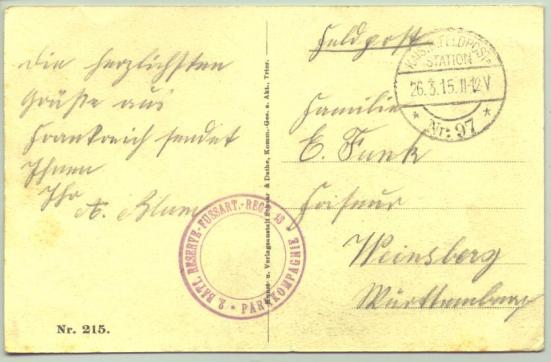 Die herzlichsten
Grüße aus
Frankreich sendet
Ihnen
Ihr
A. Blum
Nr. 215.
Feldpost
Familie
E. Funk
Friseur
Weinsberg
Württemberg
KAIS.D.FELDPOST
STATION
26.3.15.11-12V
* Nr. 97 *
2. BATL. RESERVE-FUSSART.-REGT.
* PARKKOMPAGNIE
Kunst- u. Verlagsanstalt & Dathe, Komm.-Ges. a. Akt., Trier.